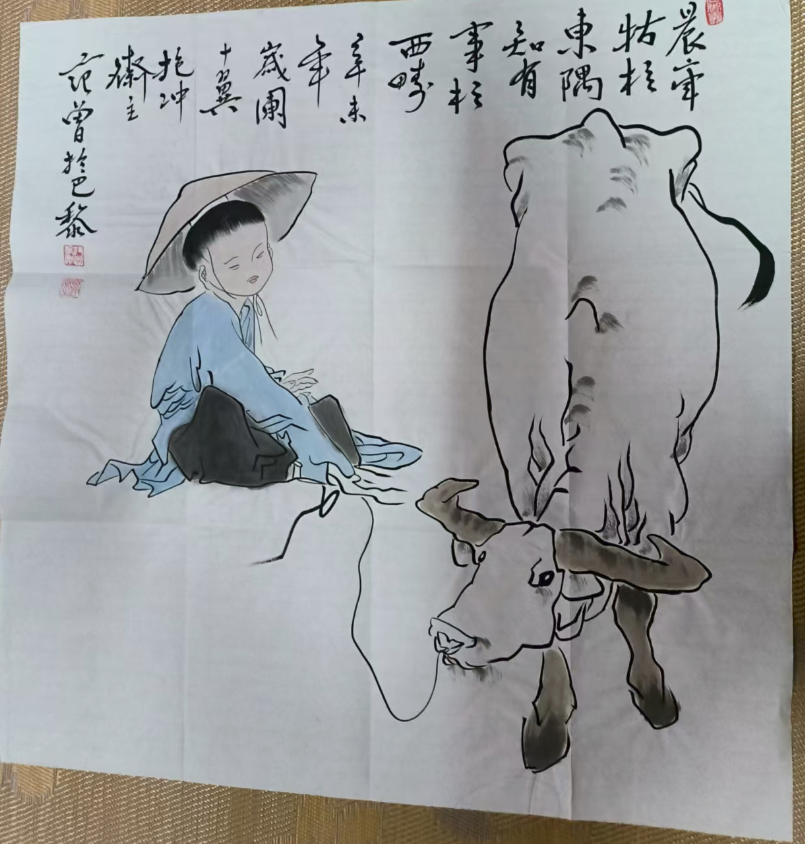 晨牽
牯於
東隅
知有
事於
西疇
辛未
年
歲闌
十翼
抱冲
齋主
范曾於巴黎